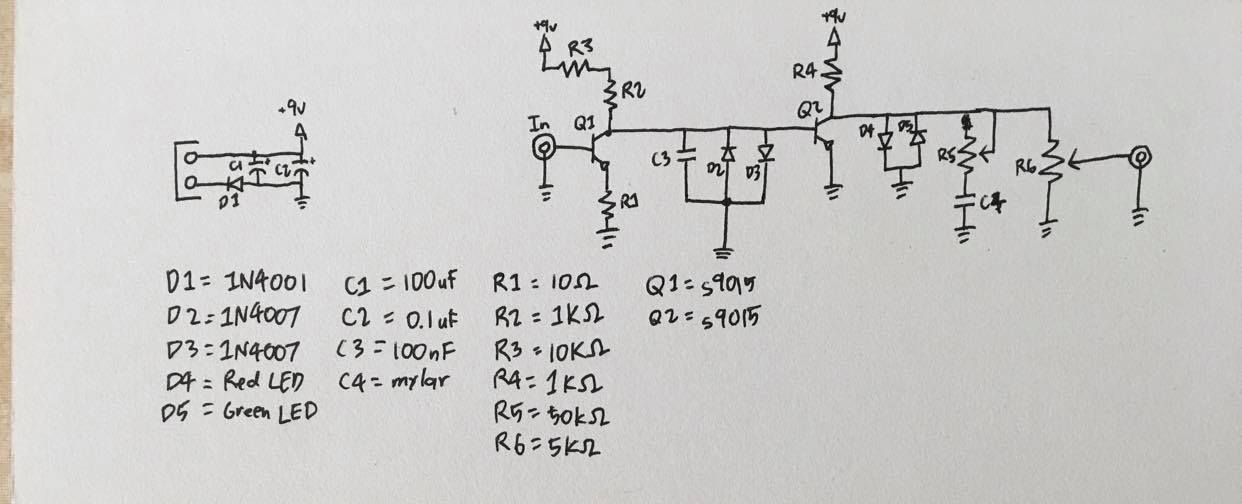 +9v
+9v
R3
R4
R2
+9v
In
Q1
Q2
D4
D5
C1
C2
C3
D2
D3
R5
R6
D1
R1
C4
D1 = 1N4001 C1 = 100uf R1 = 10Ω Q1 = s9015
D2 = 1N4007 C2 = 0.1uf R2 = 1KΩ Q2 = s9015
D3 = 1N4007 C3 = 100nF R3 = 10KΩ
D4 = Red LED C4 = mylar R4 = 1KΩ
D5 = Green LED R5 = 50KΩ
R6 = 5KΩ